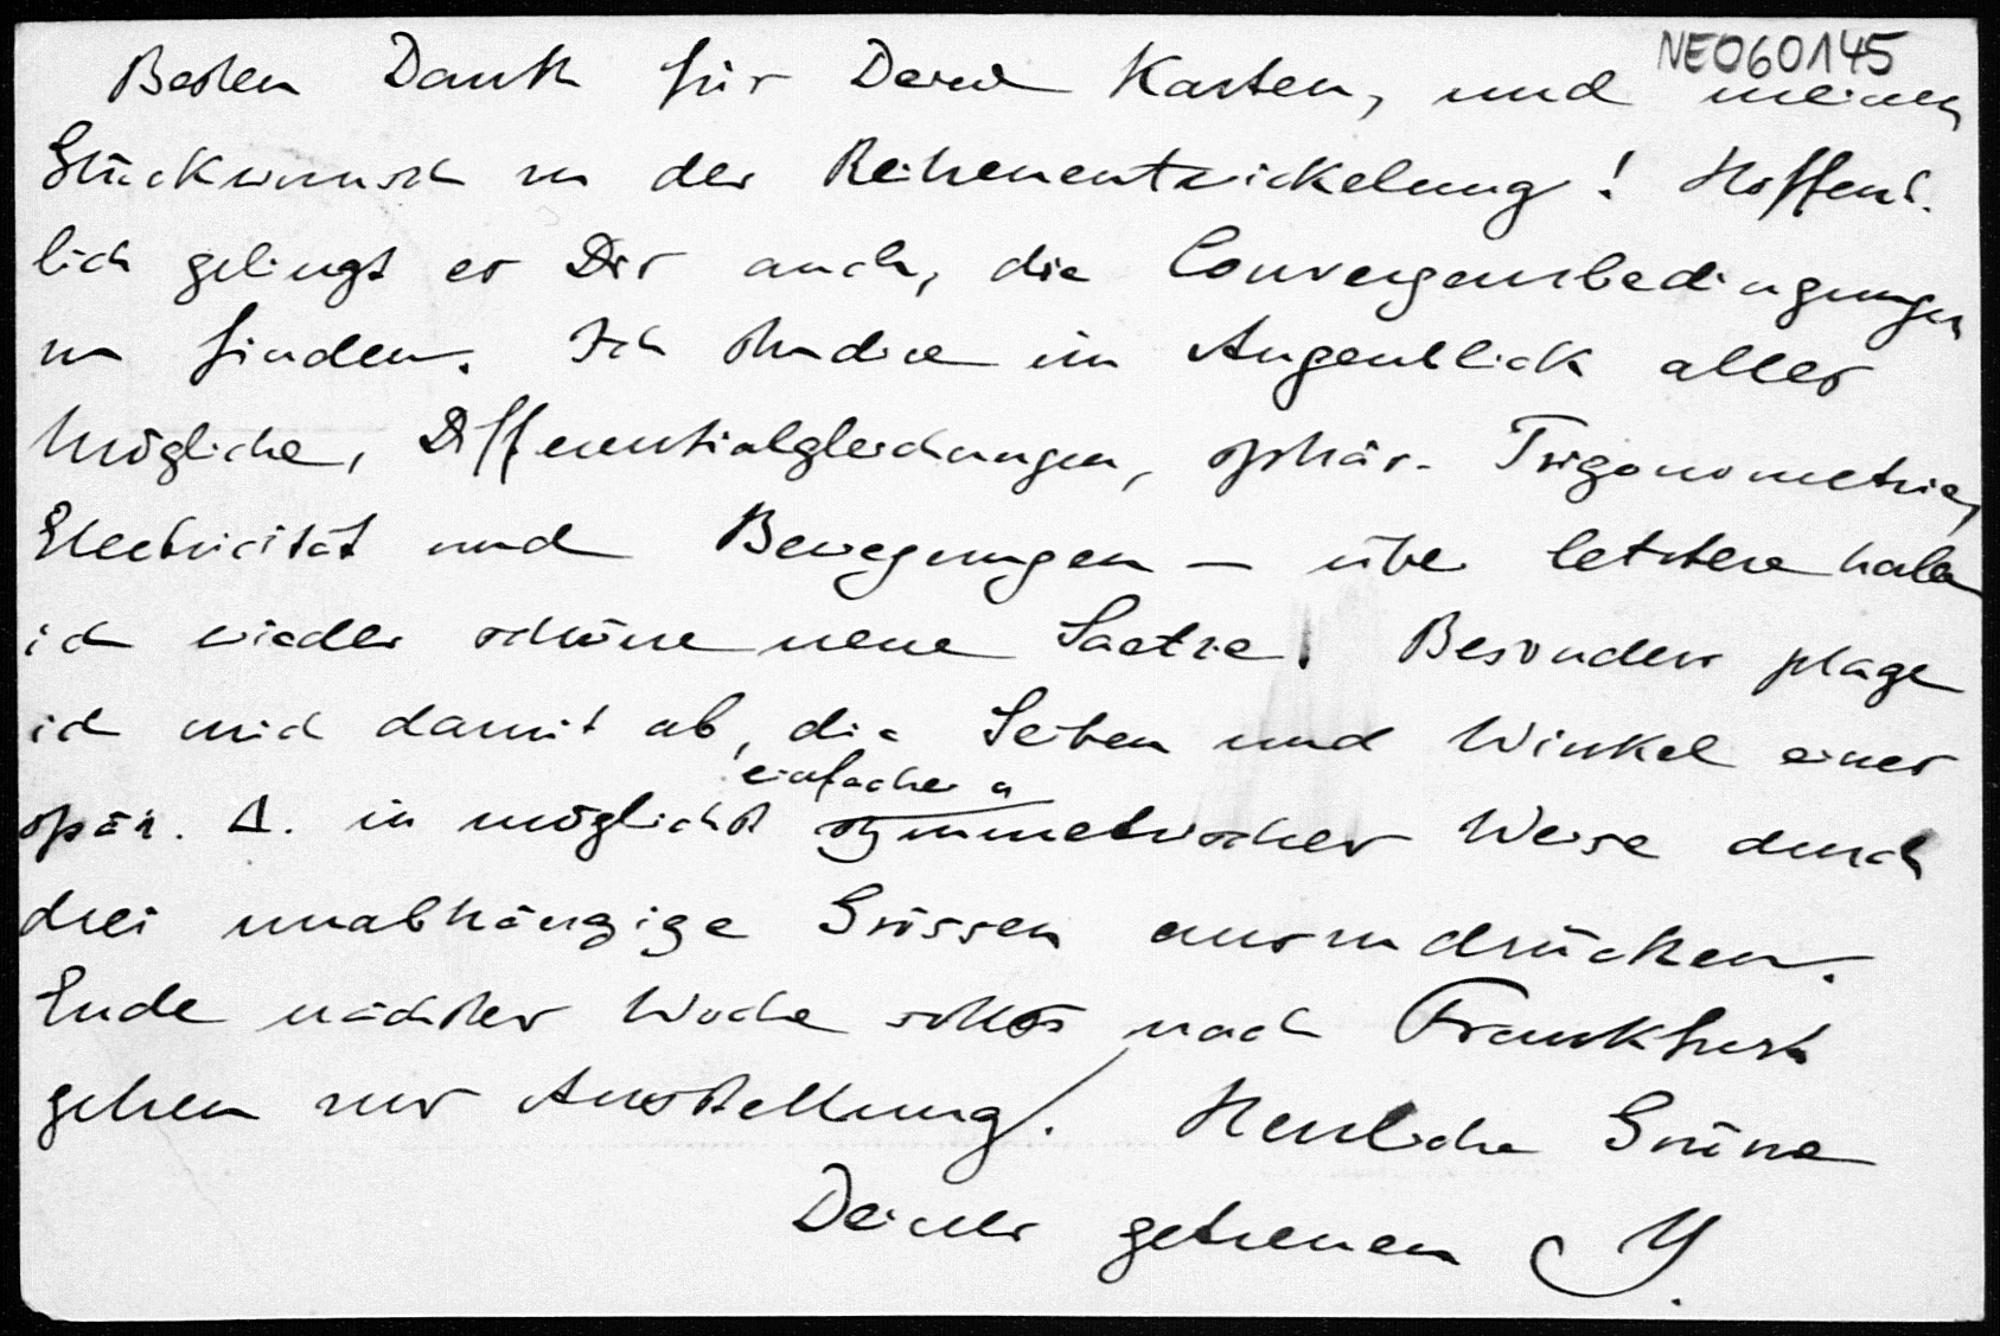 NE060145
Besten Dank für Deine Karten, und meinen
Glückwunsch zu der Reihenentwickelung! Hoffent-
lich gelingt es Dir auch, die Convergenzbedingungen
zu finden. Ich studire im Augenblick alles
Mögliche, Differentialgleichungen, sphär. Trigonometrie,
Electricität und Bewegungen – über letztere habe
ich wieder schöne neue Saetze. Besonders plage
ich mich damit ab, die Seiten und Winkel eines
spär. Δ. in möglichst einfacher u symmetrischer Weise durch
drei unabhängige Grössen auszudrücken.
Ende nächster Woche solls nach Frankfurt
gehen zur Ausstellung! Herzliche Grüsse
Deines getreuen Y.